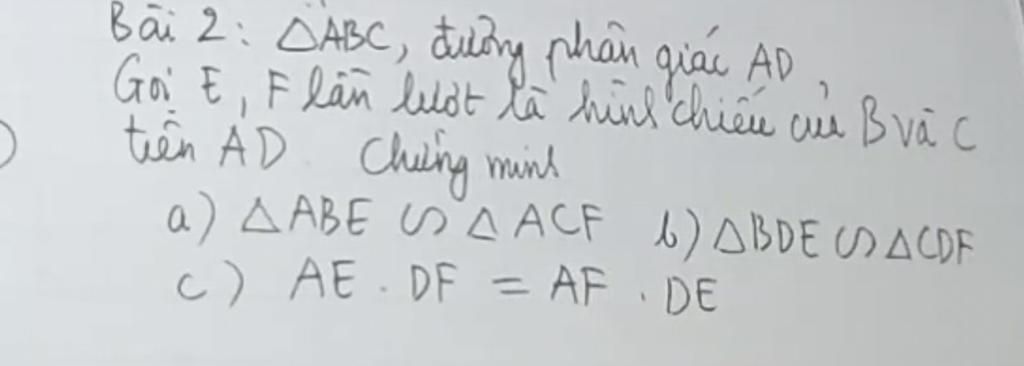 Bài 2: △ABC, đường phân giác AD.
Gọi E, F lần lượt là hình chiếu của B và C
trên AD. Chứng minh
a) △ABE ∽ △ACF b) △BDE ∽ △CDF
c) AE . DF = AF . DE